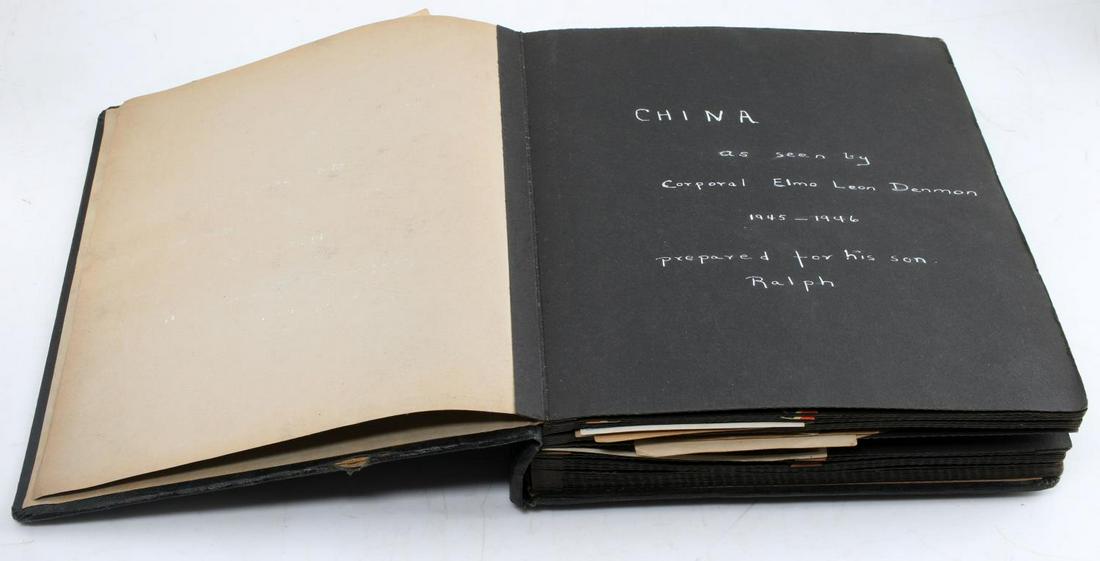 CHINA
as seen by
Corporal Elmo Leon Denmon
1945-1946
prepared for his son.
Ralph